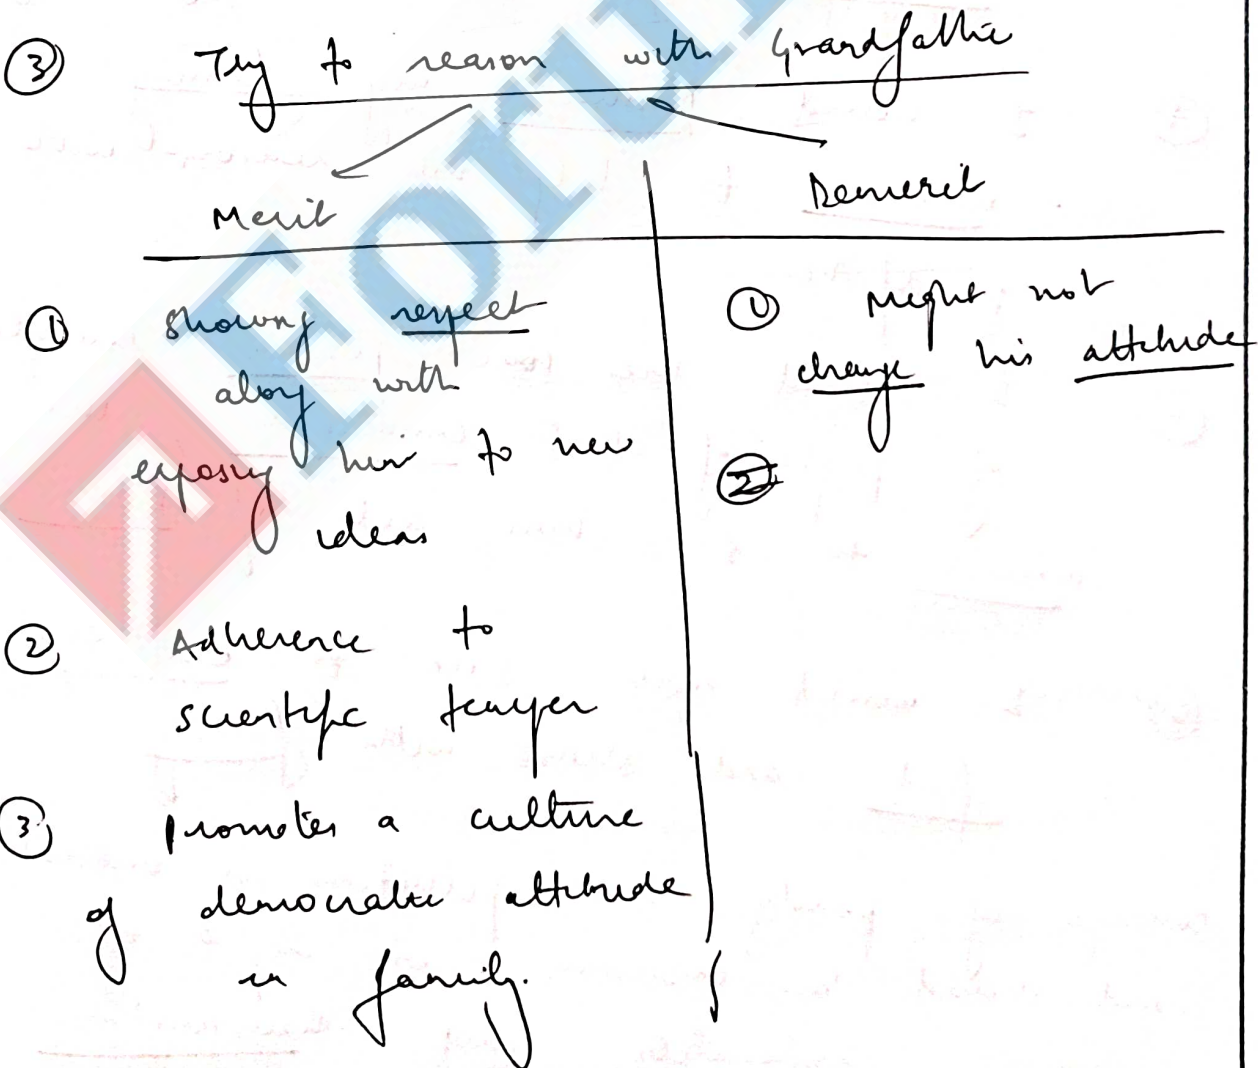 ③ Try to reason with Grandfather
Merit
Demerit
① Showing respect
along with
exposing him to new
ideas
② Adherence to
scientific temper
③ promotes a culture
of democratic attitude
in family.
① Might not
change his attitude
②
Forum